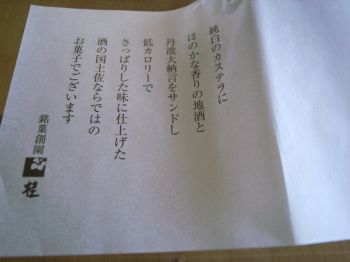 純白のカステラに
ほのかな香りの地酒と
丹波大納言をサンドし
低カロリーで
さっぱりした味に仕上げた
酒の国土佐ならではの
お菓子でございます
銘菓創園
桂